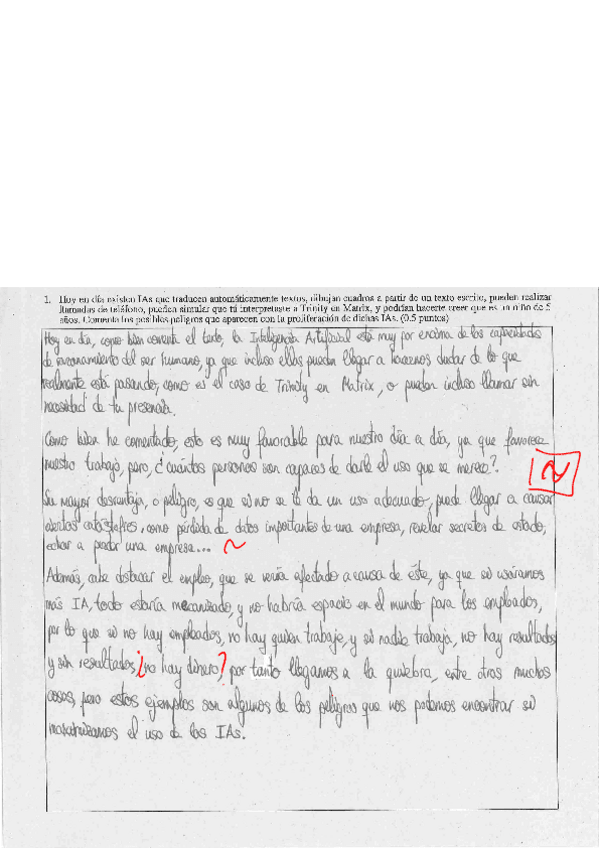 1. Hoy en día existen IAs que traducen automáticamente textos, dibujan cuadros a partir de un texto escrito, pueden realizar
llamadas de teléfono, pueden simular que tú interpretaste a Trinity en Matrix, y podrían hacerte creer que es un niño de 5
años. Comenta los posibles peligros que aparecen con la proliferación de dichas IAs. (0.5 puntos)
Hoy en día, como bien comenta el texto, la Inteligencia Artificial está muy por encima de las capacidades
de razonamiento del ser humano, ya que incluso ellas pueden llegar a hacernos dudar de lo que
realmente está pasando, como es el caso de Trinity en Matrix, o pueden incluso llamar sin
necesidad de tu presencia.
Como bien he comentado, esto es muy favorable para nuestro día a día, ya que favorece
nuestro trabajo, pero, ¿cuántas personas son capaces de darle el uso que se merece?.
Su mayor desventaja, o peligro, es que si no se le da un uso adecuado, puede llegar a causar
ciertas catástrofres, como pérdida de datos importantes de una empresa, revelar secretos de estado,
echar a perder una empresa...
Además, cabe destacar el empleo, que se vería afectado a causa de éste, ya que si usáramos
más IA, todo estaría mecanizado, y no habría espacio en el mundo para los empleados,
por lo que si no hay empleados, no hay quien trabaje, y si nadie trabaja, no hay resultados
y sin resultados, ¿no hay dinero?, por tanto llegamos a la quiebra, entre otras muchas
cosas, pero estos ejemplos son algunos de los peligros que nos podemos encontrar si
el uso de las IAs.